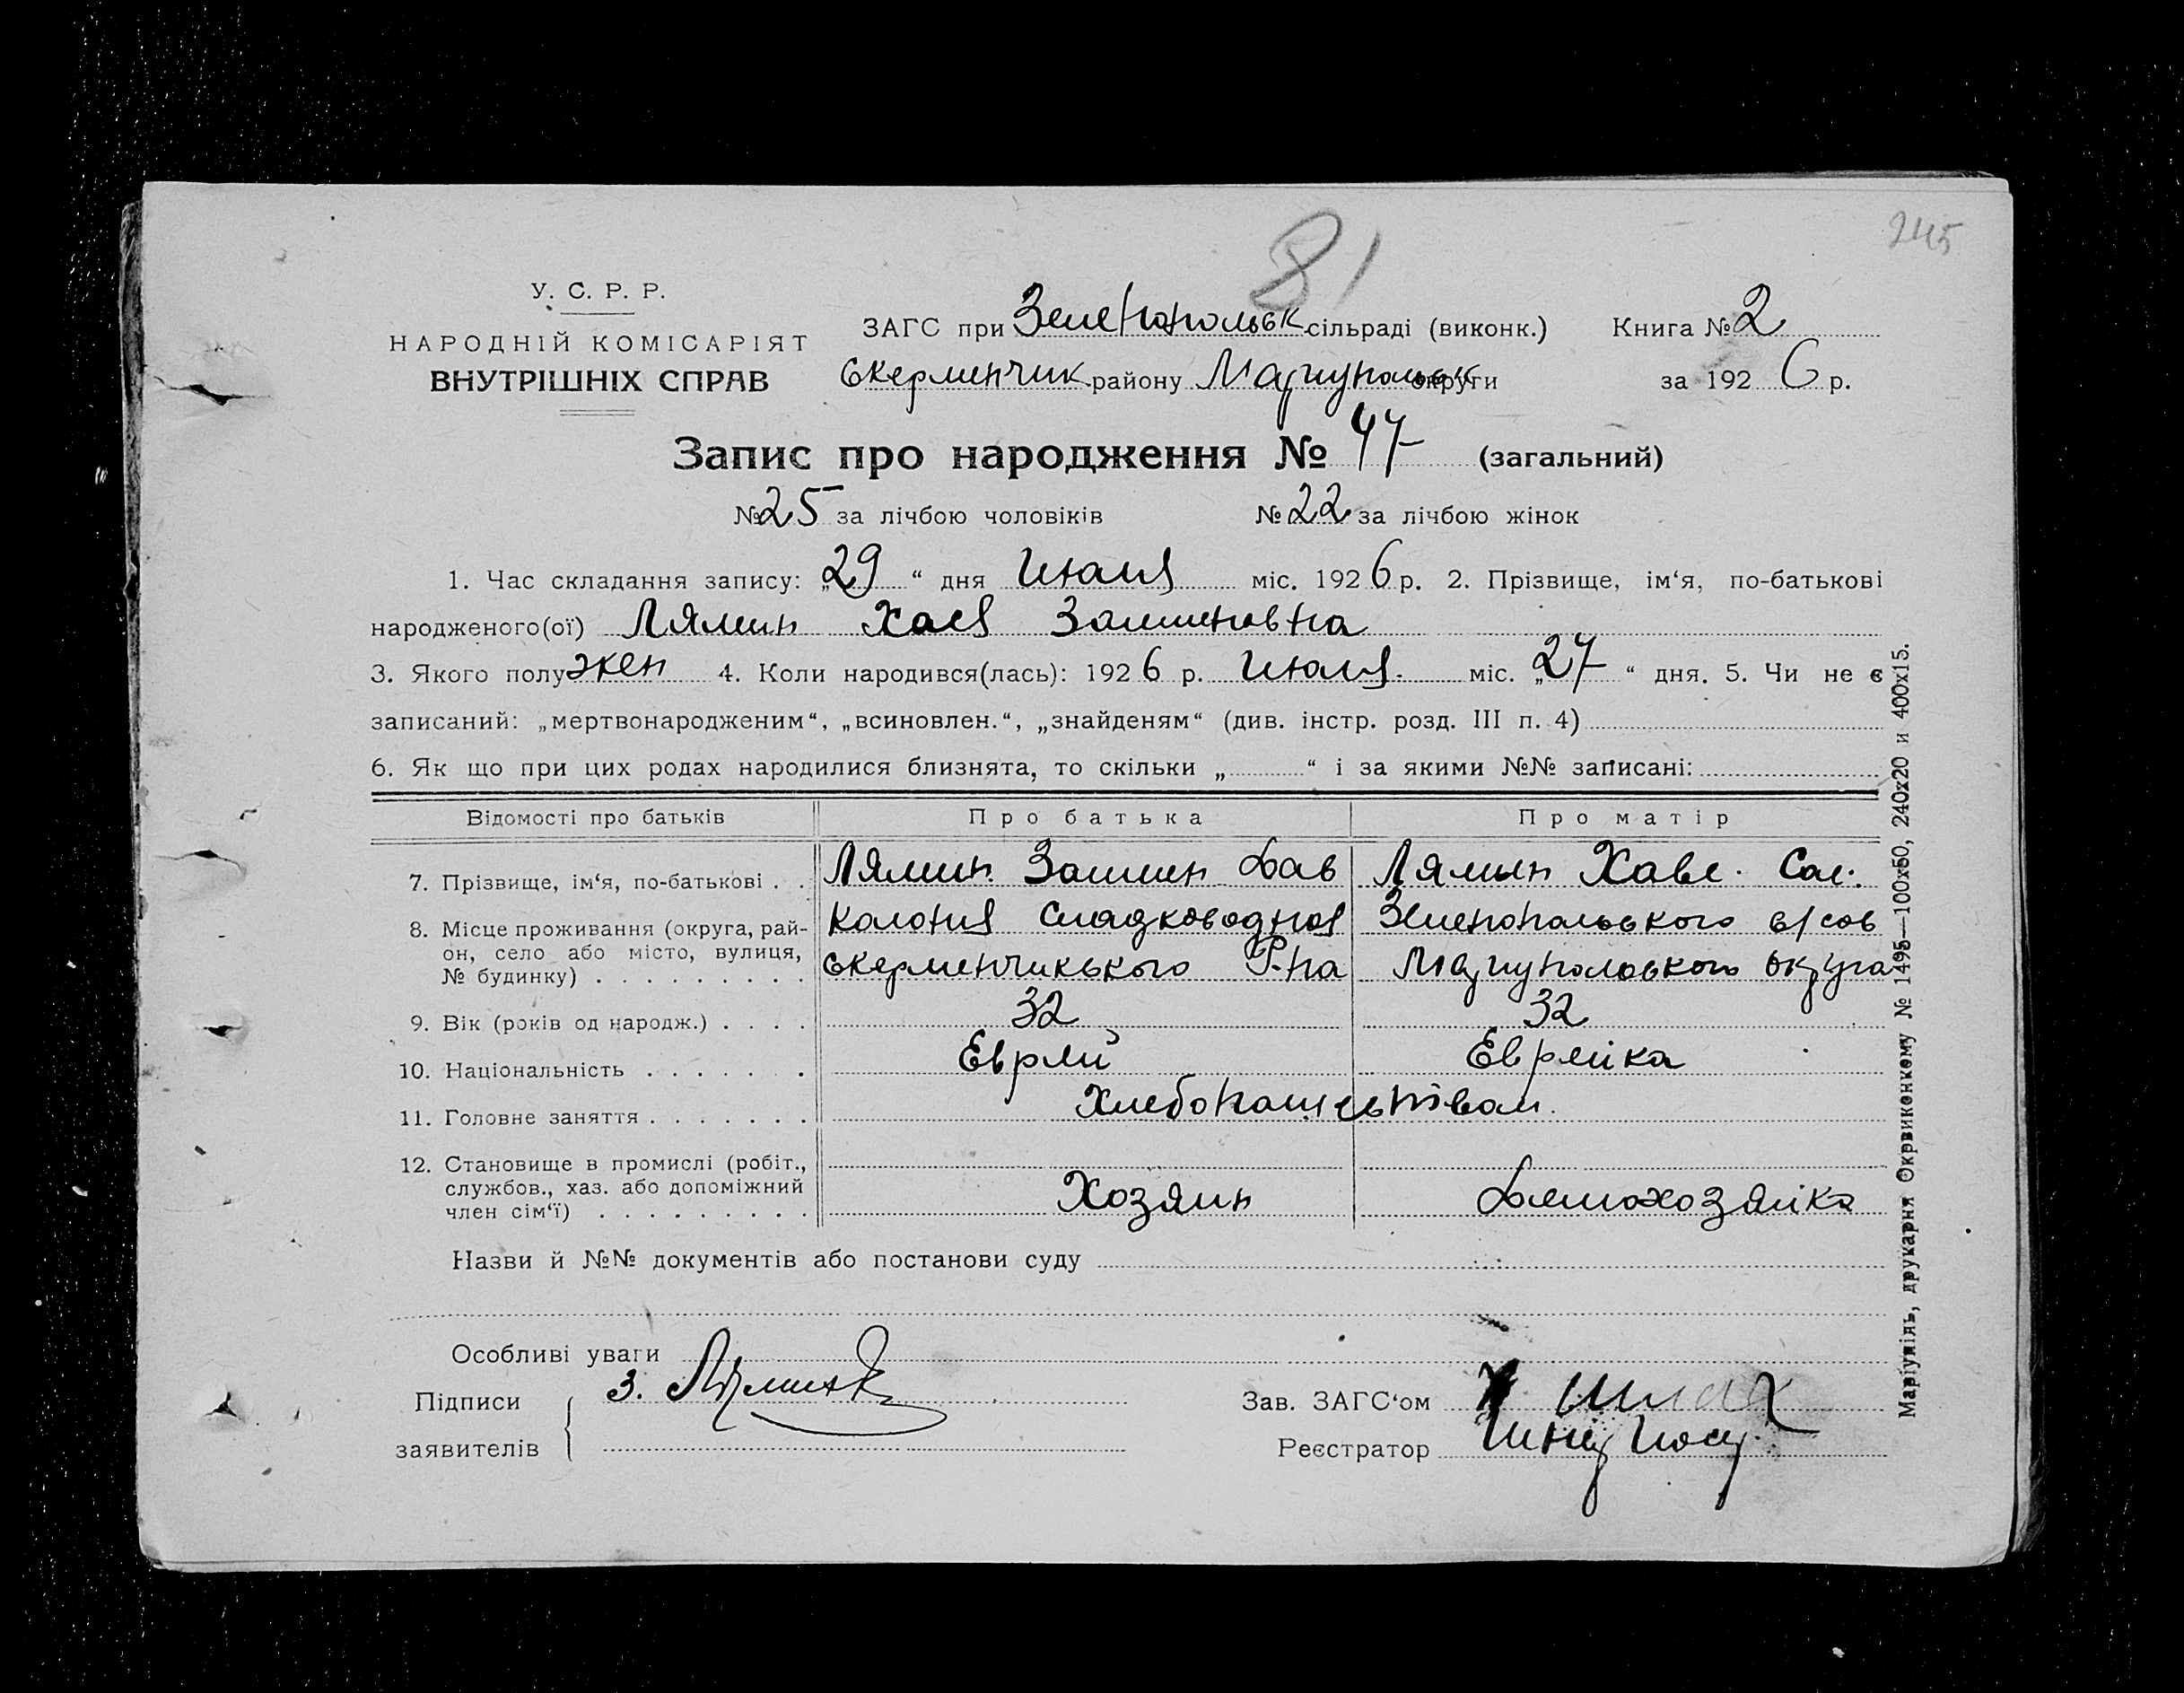 245
81
У. С. Р. Р.
НАРОДНІЙ КОМІСАРІЯТ
ВНУТРІШНІХ СПРАВ
ЗАГС при Зеленопольск сільраді (виконк.) Книга № 2
Керменчик району Мариупольск округи за 1926 р.
Запис про народження № 47 (загальний)
№ 25 за лічбою чоловіків № 22 за лічбою жінок
1. Час складання запису: „29“ дня Июля міс. 1926 р. 2. Прізвище, ім‘я, по-батькові
народженого(ої) Лямин Хася Залменовна
3. Якого полу жен 4. Коли народився(лась): 1926 р. Июля. міс. „27“ дня. 5. Чи не є
записаний: „мертвонародженим“, „всиновлен.“, „знайденям“ (див. інстр. розд. III п. 4)
6. Як що при цих родах народилися близнята, то скільки „ “ і за якими №№ записані:
Відомості про батьків Про батька Про матір
7. Прізвище, ім‘я, по-батькові . . Лямин Залмен Дав Лямин Хаве. Сол.
8. Місце проживання (округа, рай- Колония Сладководная Зеленопольського с/сов
он, село або місто, вулиця, Керменчикького Р-на Мариупольського округа
№ будинку) . . . . . . . . .
9. Вік (років од народж.) . . . . 32 32
10. Національність . . . . . . . Еврей Еврейка
11. Головне заняття . . . . . . . Хлебопашеством.
12. Становище в промислі (робіт.,
службов., хаз. або допоміжний Хозяин Домохозяйка
член сім‘ї) . . . . . . . . .
Назви й №№ документів або постанови суду
Особливі уваги
Підписи З. Лямин Зав. ЗАГС‘ом
заявителів Реєстратор
Маріупіль, друкарня Окрвиконкому № 1495—100х50, 240х20 и 400х15.